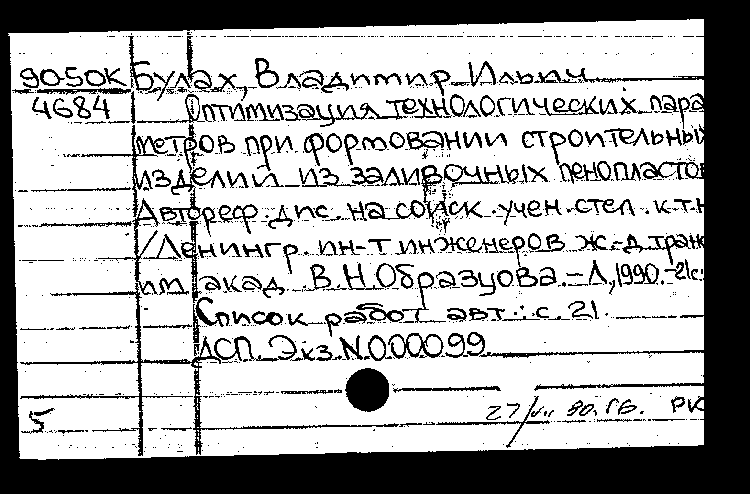 90-50К Булах, Владимир Ильич
4684 Оптимизация технологических пара
метров при формовании строительны
изделий из заливочных пенопласто
Автореф. дис. на соиск. учен. степ. к.т.н
/Ленингр. ин-т инженеров ж.-д. тран
им. акад. В.Н.Образцова.-Л.,1990.-21с.
Список работ авт.: с. 21.
ДСП. Экз. N000099
5 27/ 90. ГБ. РК